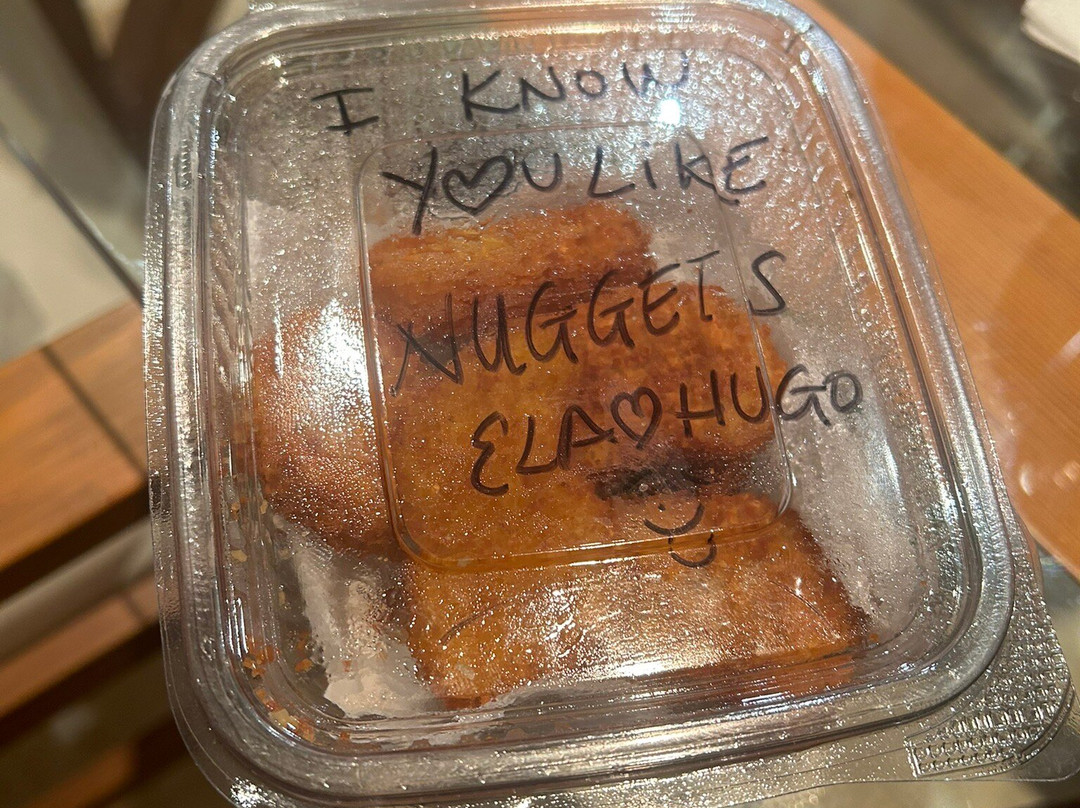 I KNOW
Y♡U LiKE
NUGGETS
ELA♡HUGO